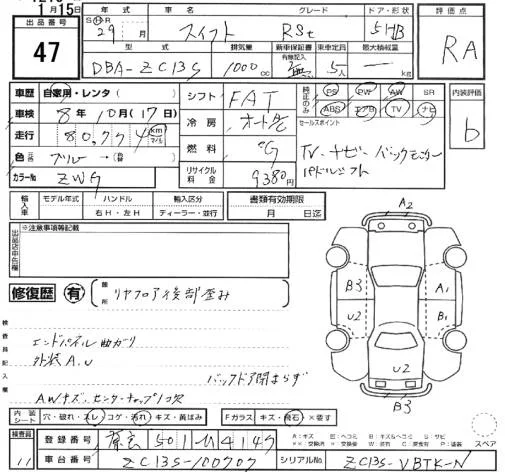 1月15日
出品番号
47
年式 車名 グレード ドア・形状
S H R
29 月 スイフト RSt 5HB
評価点
RA
型式 排気量 新車保証書 乗車定員 最大積載量
有無記入
DBA-ZC13S 1000cc 無 5人 ー kg
車歴 自家用・レンタ( )
車検 8年10月(17日)
走行 80,774 km マイル
色 元色 ブルー → 色替( )
カラーNo. ZWG
シフト FAT
冷房 オートAC
燃料 G
リサイクル料金 9380円
純正のみ PS PW AW SR
ABS エアB TV ナビ
内装評価
b
セールスポイント
TV・ナビ・バックモニター
パドルシフト
輸入車 モデル年式 ハンドル 輸入区分
年 右H・左H ディーラー・並行
書類有効期限
月 日迄
出品店申告欄
※注意事項等記載
修復歴 有 箇所 リヤフロア後部歪み
検査員記入欄
エンドパネル曲がり
外装A.U
バックドア閉まらず
AWキズ、センターキャップ1欠
A2
B3 A1
U2 B1
U2
B3
スペア
内装シート 穴・破れ・スレ コゲ・汚れ キズ・黄ばみ
Fガラス キズ・飛石 ×要す
A:キズ U:凹ミ B:キズ&ヘコミ S:サビ
検査員
11
登録番号 501 4147
車台番号 ZC13S-100707
シリアルNo. ZC13S-VBTK-N